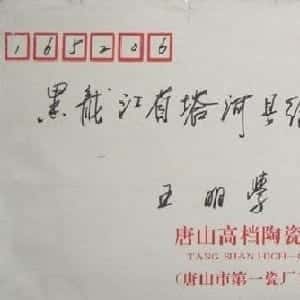 165206
黑龙江省塔河县
王明学
唐山高档陶瓷
TANG SHAN HIGH-
(唐山市第一瓷厂